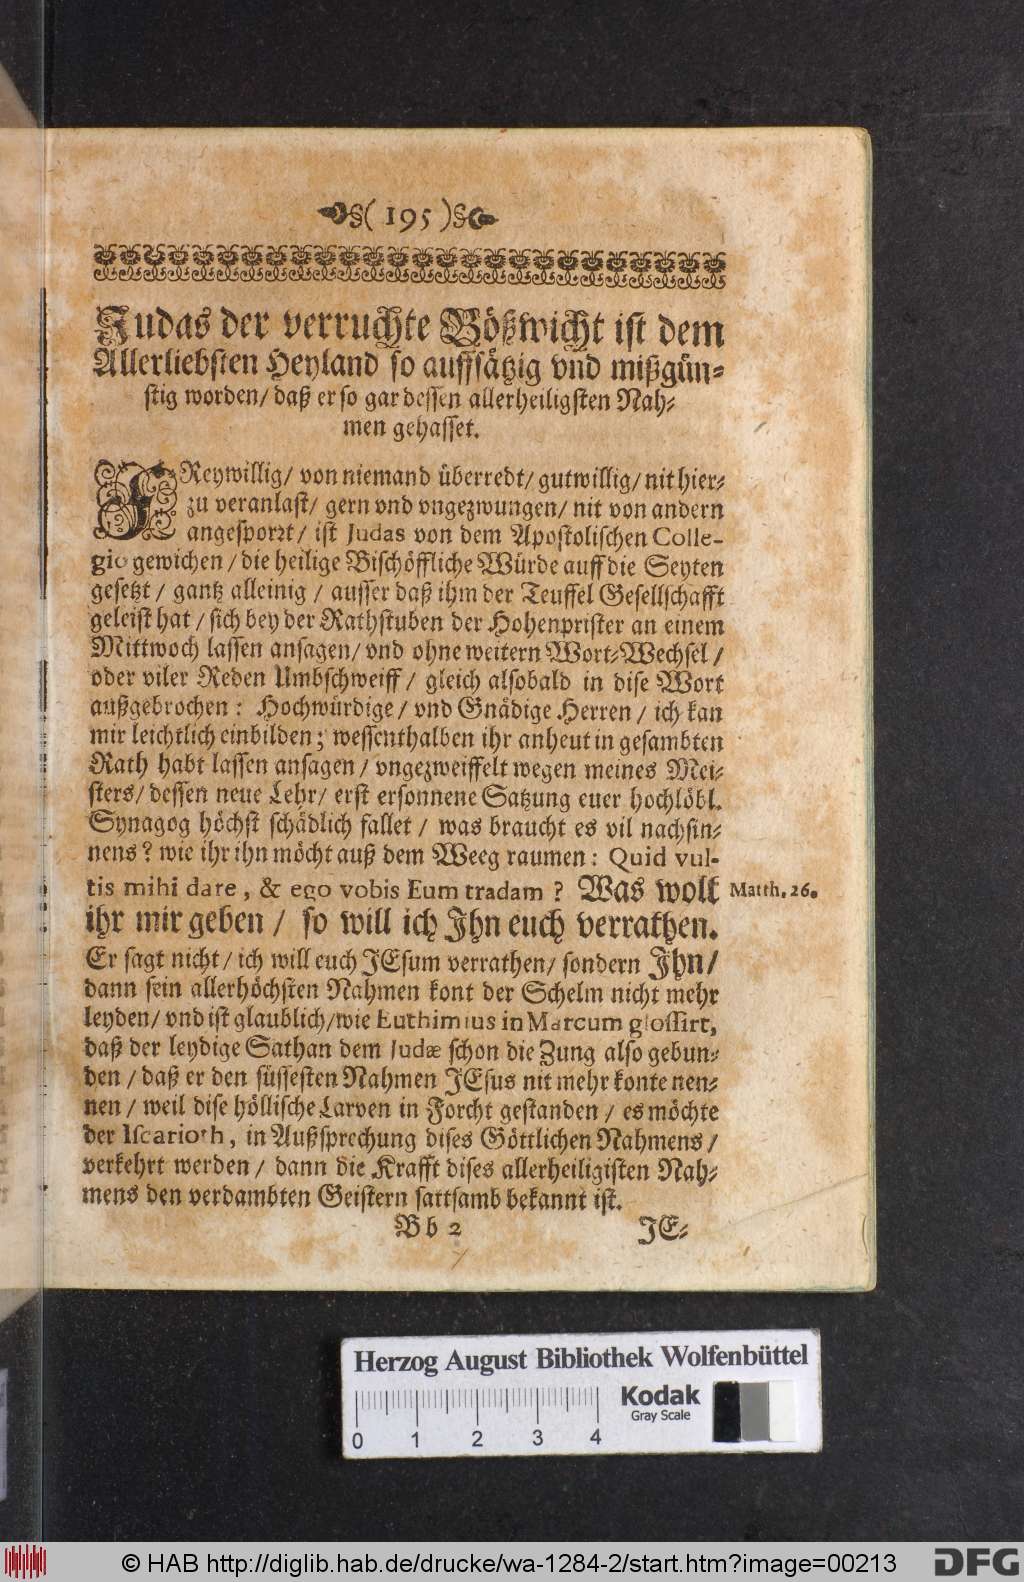 ( 195 )
Judas der verruchte Bößwicht ist dem
Allerliebsten Heyland so auffsätzig vnd mißgün-
stig worden/ daß er so gar dessen allerheiligsten Nah-
men gehasset.
FReywillig/ von niemand überredt/ gutwillig/ nit hier-
zu veranlast/ gern vnd vngezwungen/ nit von andern
angesporrt/ ist Judas von dem Apostolischen Colle-
gio gewichen/ die heilige Bischöffliche Würde auff die Seyten
gesetzt/ gantz alleinig/ ausser daß ihm der Teuffel Gesellschafft
geleist hat/ sich bey der Rathstuben der Hohenprister an einem
Mittwoch lassen ansagen/ vnd ohne weitern Wort-Wechsel/
oder viler Reden Umbschweiff/ gleich alsobald in dise Wort
außgebrochen: Hochwürdige/ vnd Gnädige Herren/ ich kan
mir leichtlich einbilden; wessenthalben ihr anheut in gesambten
Rath habt lassen ansagen/ vngezweiffelt wegen meines Mei-
sters/ dessen neue Lehr/ erst ersonnene Satzung euer hochlöbl.
Synagog höchst schädlich fallet/ was braucht es vil nachsin-
nens? wie ihr ihn möcht auß dem Weeg raumen: Quid vul-
tis mihi dare, & ego vobis Eum tradam? Was wolt Matth. 26.
ihr mir geben/ so will ich Ihn euch verrathen.
Er sagt nicht/ ich will euch JEsum verrathen/ sondern Ihn/
dann sein allerhöchsten Nahmen kont der Schelm nicht mehr
leyden/ vnd ist glaublich/ wie Euthimius in Marcum glossirt,
daß der leydige Sathan dem Judæ schon die Zung also gebun-
den/ daß er den süssesten Nahmen JEsus nit mehr konte nen-
nen/ weil dise höllische Larven in Forcht gestanden/ es möchte
der Iscarioth, in Außsprechung dises Göttlichen Nahmens/
verkehrt werden/ dann die Krafft dises allerheiligisten Nah-
mens den verdambten Geistern sattsamb bekannt ist.
Bb 2 JE-
Herzog August Bibliothek Wolfenbüttel
Kodak
Gray Scale
0 1 2 3 4
© HAB http://diglib.hab.de/drucke/wa-1284-2/start.htm?image=00213
DFG